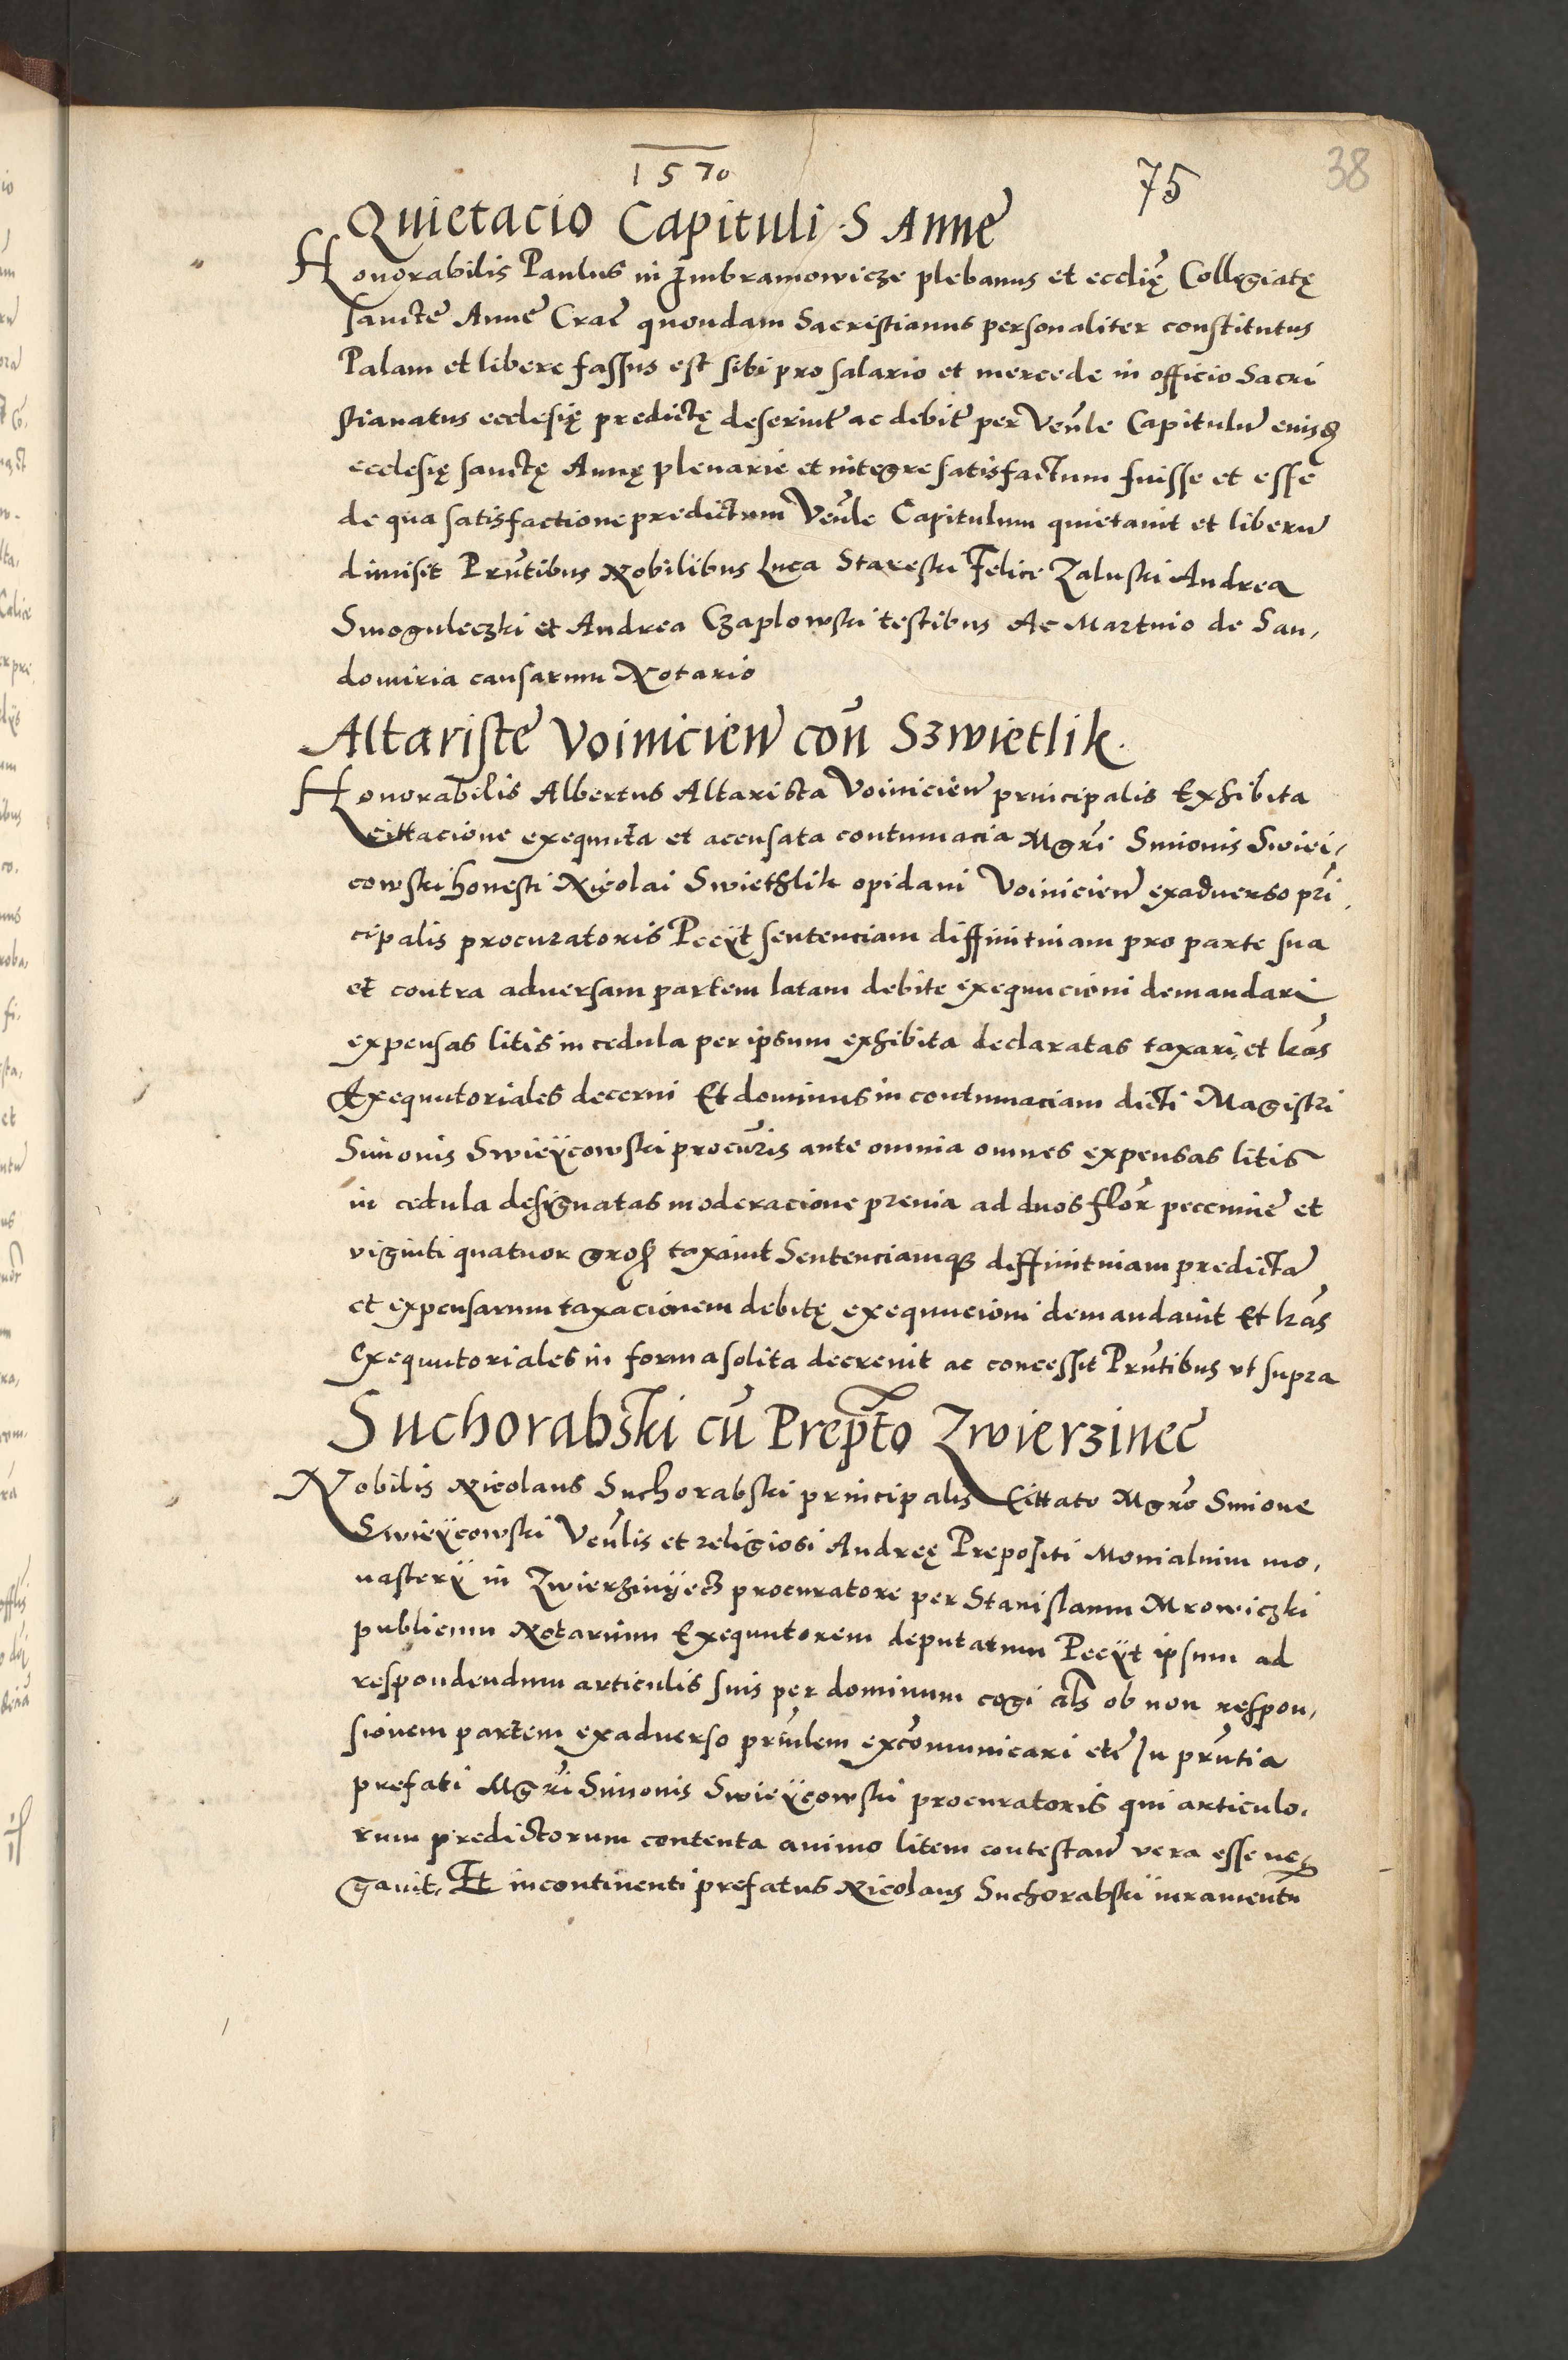 1570
75
38
Quietacio Capituli S Anne
Honorabilis Paulus in Imbramowicze plebanus et ecclię Collegiatę
sancte Anne Crac̃ quondam Sacristianus personaliter constitutus
Palam et libere fassus est sibi pro salario et mercede in officio Sacri
stianatus ecclesię predictę deseruit̃ ac debit̃ per Venl̃e Capitulũ euisdẽ
ecclesię sanctę Annę plenarie et integre satisfactum fuisse et esse
de qua satisfactione predictum Venl̃e Capitulum quietauit et liberũ
dimisit Prñtibus Nobilibus Luca Stareski Felice Zaluski Andrea
Smoguleczki et Andrea Czaplowski testibus Ac Martino de San,
domiria causarum Notario
Altariste Voinicień coñ Szwietlik.
Honorabilis Albertus Altarista Voinicień principalis Exhibita
Cittacione exequuta et accusata contumacia Mgrĩ Simonis Swiei,
cowski honesti Nicolai Swiethlik opidani Voinicień exaduerso prĩ,
cipalis procuratoris Peciit sentenciam diffinitiuam pro parte sua
et contra aduersam partem latam debite exequucioni demandari
expensas litis in cedula per ipsum exhibita declaratas taxari, et lrãs
Exequutoriales decerni Et dominus in contumaciam dicti Magistri
Simonis Swieÿcowski procũris ante omnia omnes expensas litis
in cedula designatas moderacione preuia ad duos flor̃ peccunie et
viginti quatuor gross̃ taxauit Sentenciamq̃ diffinitiuam predictã
et expensarum taxacionem debitę exequucioni demandauit Et lrãs
Exequutoriales in forma solita decreuit ac concessit Prñtibus vt supra
Suchorabski cũ Prep̃to Zwierzineč
Nobilis Nicolaus Suchorabski principalis Cittato Mgrõ Simione
Swieÿcowski Venl̃is et religiosi Andreę Prepositi Monialium mo,
nasterÿ in Zwierzinÿecz procuratore per Stanislaum Mrowiczki
publicum Notarium Exequutorem deputatum Peciit ipsum ad
respondendum articulis suis per dominum cogi als̃ ob non respon,
sionem partem exaduerso prin̄lem excõmunicari etč In prñtia
prefati Mgrĩ Simonis Swieÿcowski procuratoris qui articulo,
rum predictorum contenta animo litem contestań vera esse ne,
gauit, Et incontinenti prefatus Nicolaus Suchorabski iuramentũ